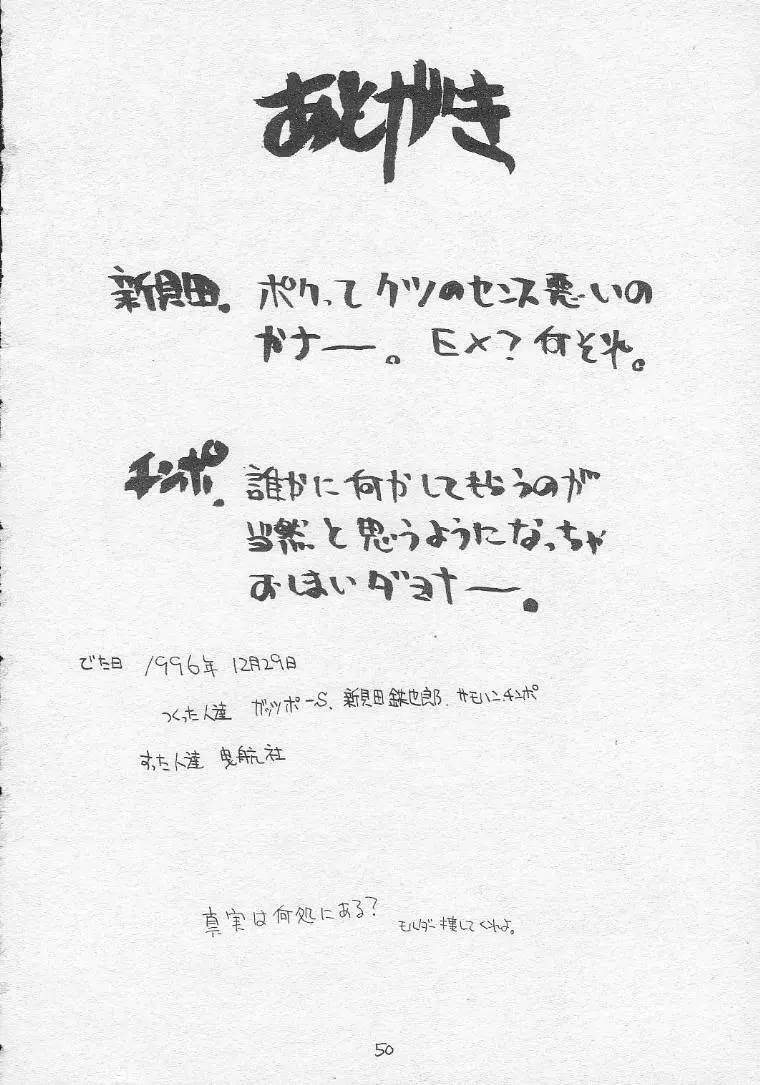 あとがき
新見田。ボクってクツのセンス悪いの
カナー。EX?何それ。
チンポ。誰かに何かしてもらうのが
当然と思うようになっちゃ
おしまいダヨナー。
でた日 1996年 12月29日
つくった人達 ガッツポーS、新見田鉄也郎、サモハンチンポ
すった人達 曳航社
真実は何処にある?
モルダー捜してくれよ。
50